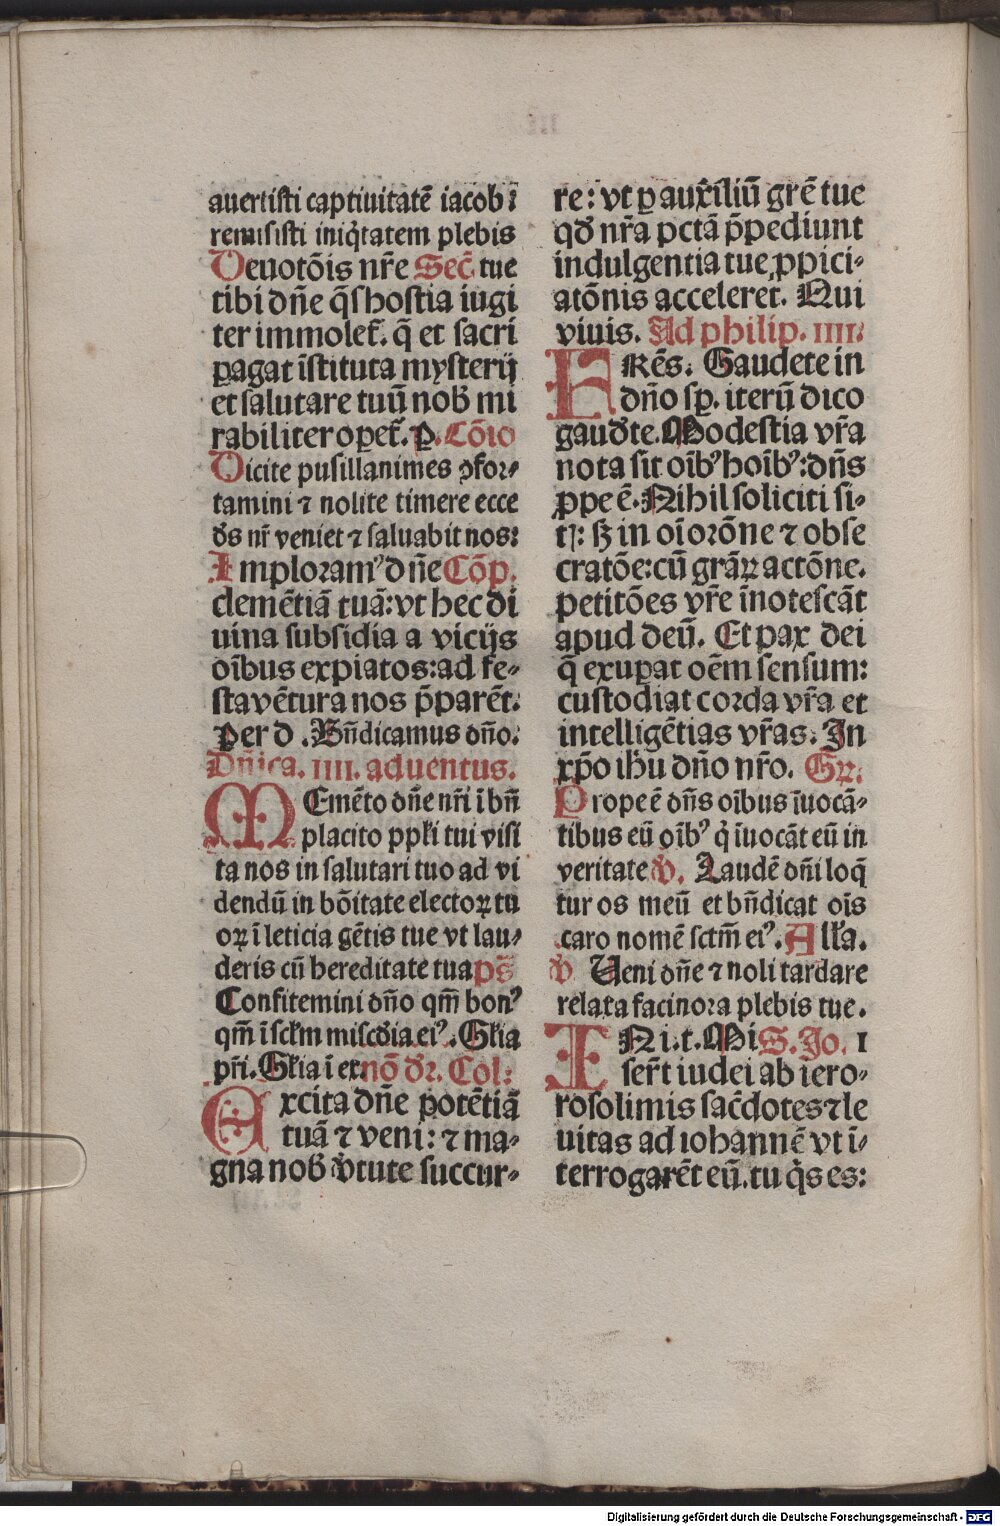 auertisti captiuitatē iacob:
remisisti iniq̄tatem plebis
Deuotōis nr̄e Sec̄. tue
tibi dn̄e q̄s hostia iugi
ter immolet̄. q̄ et sacri
ꝑagat īstituta mysterij
et salutare tuū nob̄ mi
rabiliter oꝑet̄. ꝑ. Cōio
Dicite pusillanimes ꝯfor⸗
tamini ⁊ nolite timere ecce
ds̄ nr̄ veniet ⁊ saluabit nos:
Imploramꝰ dn̄e Cōp.
clemētiā tuā: vt hec di
uina subsidia a vicijs
oībus expiatos: ad fe⸗
sta vētura nos p̄parēt.
Per d. Bn̄dicamus dn̄o.
Dn̄ica. IIII. aduentus.
MEmēto dn̄e nr̄i ī bn̄
placito ppl̄i tui visi
ta nos in salutari tuo ad vi
dendū in bōitate electoꝝ tu
oꝝ ī leticia gētis tue vt lau⸗
deris cū hereditate tua ps̄
Confitemini dn̄o qm̄ bonꝰ
qm̄ ī scl̄m misc̄dia eiꝰ. Gl̄ia
pr̄i. Gl̄ia ī ex nō dr̄. Col:
Excita dn̄e potētiā
tuā ⁊ veni: ⁊ ma⸗
gna nob̄ v̄tute succur⸗
re: vt ꝑ auxiliū grē tue
qd̄ nr̄a pctā p̄pediunt
indulgentia tue ꝓpici⸗
atōnis acceleret. Qui
viuis. Ad philip. IIII.
FRēs. Gaudete in
dn̄o sꝑ. iterū dico
gaud̄te. Modestia vr̄a
nota sit oībꝰ hoībꝰ: dn̄s
ꝓpe ē. Nihil soliciti si⸗
tꝭ: sꝫ in oī orōne ⁊ obse
cratōe: cū grāꝝ actōne.
petitōes vr̄e īnotescāt
apud deū. Et pax dei
q̄ exuꝑat oēm sensum:
custodiat corda vr̄a et
intelligētias vr̄as. In
xp̄o ih̄u dn̄o nr̄o. Gꝝ.
Prope ē dn̄s oībus īuocā⸗
tibus eū oībꝰ q̇ īuocāt eū in
veritate v̄. Laudē dn̄i loq̄
tur os meū et bn̄dicat oīs
caro nomē sctm̄ eiꝰ. All̄a.
v̄. Ueni dn̄e ⁊ noli tardare
relaxa facinora plebis tue.
INi. t. Mi S. Jo. I
ser̄t iudei ab iero⸗
rosolimis sac̄dotes ⁊ le
uitas ad iohannē vt ī⸗
terrogarēt eū. tu q̇s es:
Digitalisierung gefördert durch die Deutsche Forschungsgemeinschaft - DFG